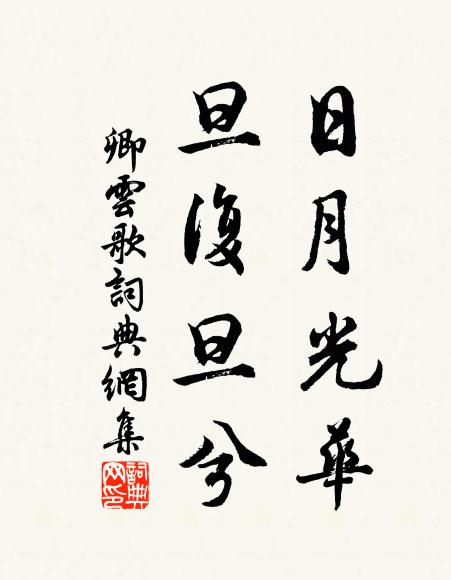 日月光華
旦復旦兮
卿雲歌詞典網集
詞典网印